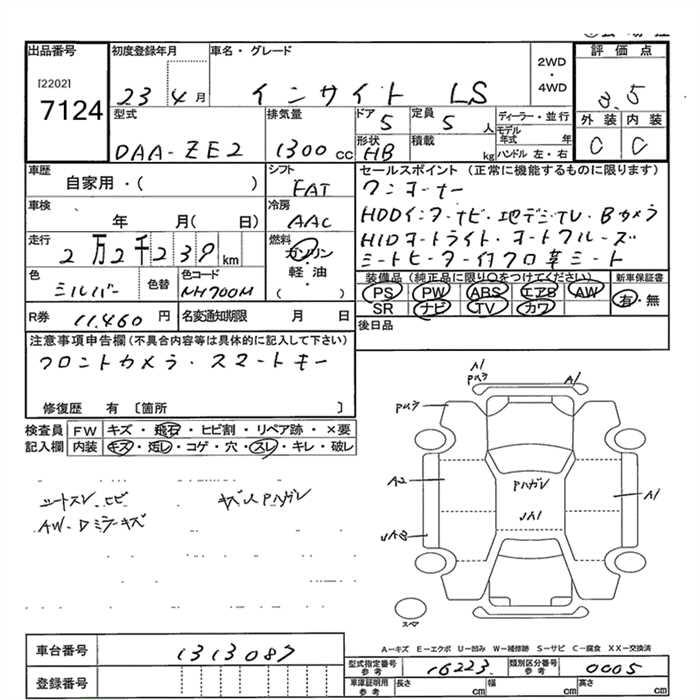 出品番号 初度登録年月 車名・グレード 2WD・4WD 評価点
[2202]
7124
23年4月 インサイト LS 3.5
型式 排気量 ドア 定員 ディーラー・並行 外装 内装
DAA-ZE2 1300cc 5 5人 モデル年式 年 C C
形状 積載 kg ハンドル 左・右
HB
車歴 シフト セールスポイント (正常に機能するものに限ります)
自家用・( ) FAT ワンオーナー
車検 冷房 HDDインターナビ・地デジTV・Bカメラ
年 月( 日) AAC HIDオートライト・オートクルーズ
走行 燃料 シートヒーター付クロ革シート
2万2千239km ガソリン・軽油・( )
色 色替 色コード 装備品 (純正品に限り○をつけてください) 新車保証書
シルバー NH700M PS PW ABS エアB AW 有・無
SR ナビ TV カワ
R券 11,460円 名変通知期限 月 日 後日品
注意事項申告欄(不具合内容等は具体的に記入して下さい)
フロントカメラ・スマートキー
修復歴 有 〔箇所 〕
検査員 FW キズ・飛石・ヒビ割・リペア跡・×要
記入欄 内装 キズ・汚レ・コゲ・穴・スレ・キレ・破レ
シートスレ、ヒビ
AW・Dミラーキズ
A1
A1
A2
A1
Pハガレ
スペア
A-キズ E-エクボ U-凹み W-補修跡 S-サビ C-腐食 XX-交換済
車台番号 1313087
登録番号
型式指定番号 参考 16223 類別区分番号 参考 0005
車庫証明用 参考 長さ cm 幅 cm 高さ cm